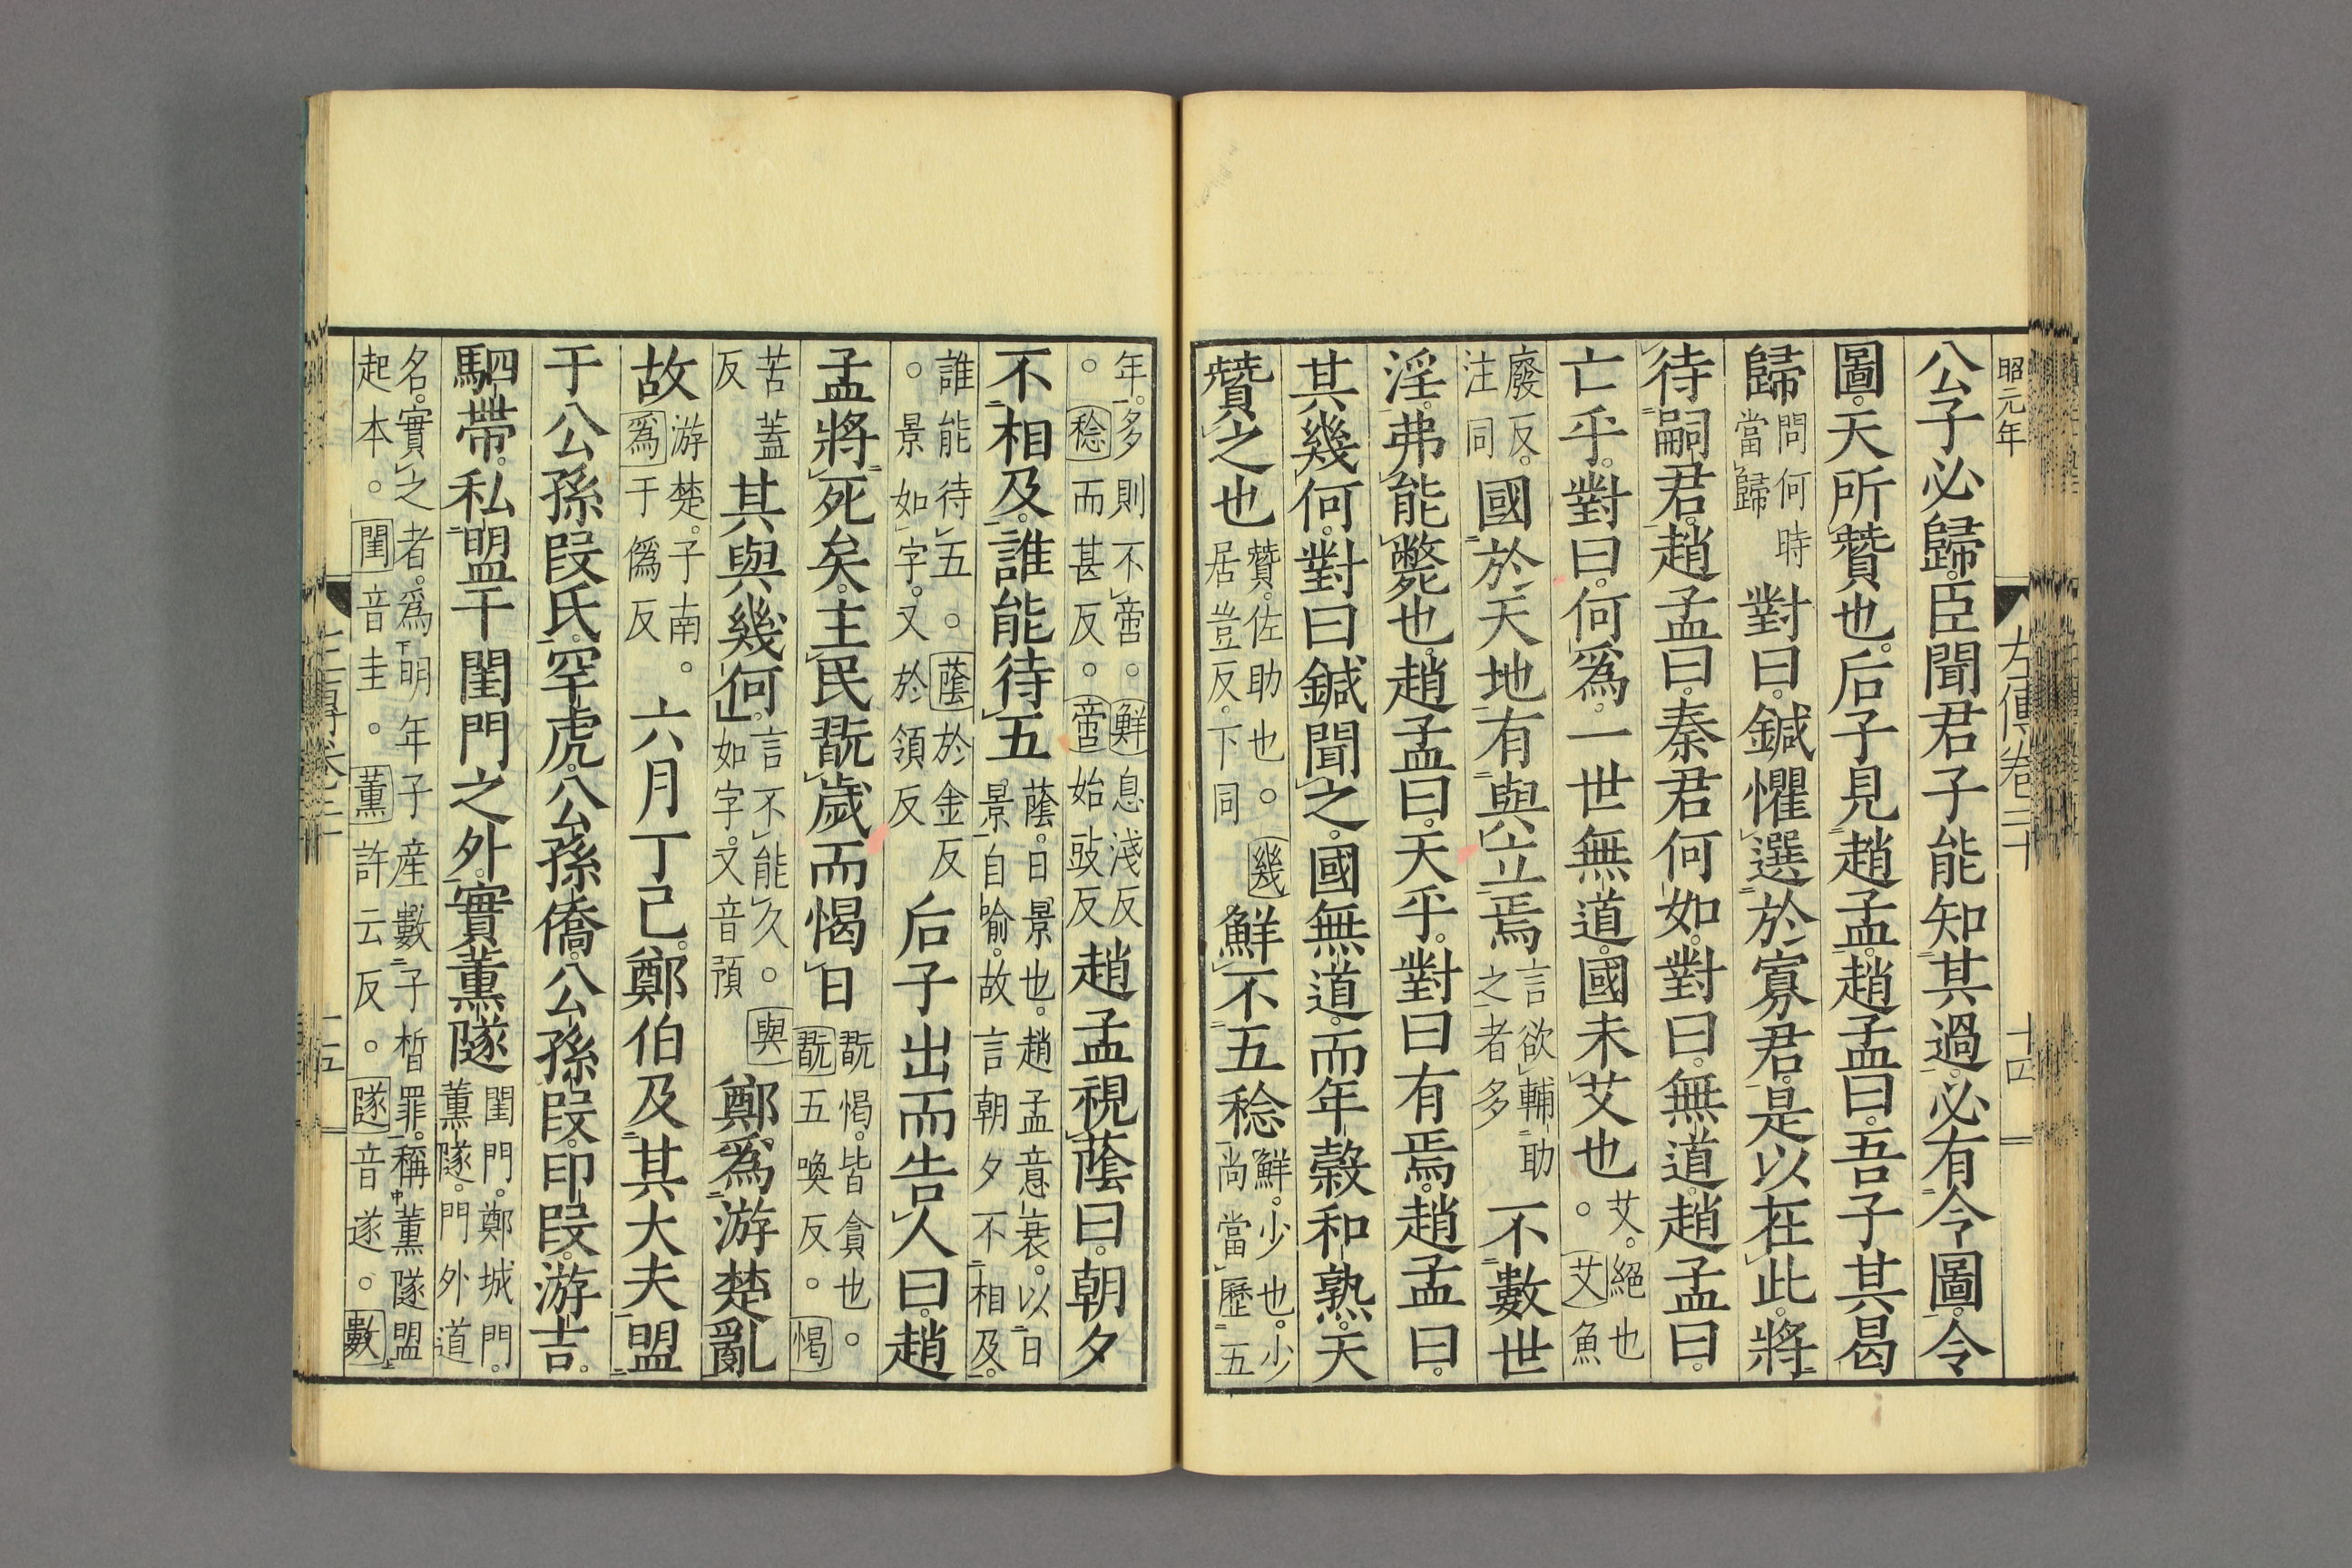 昭元年
左傳卷二十
十四
公子必歸。臣聞君子能知其過。必有令圖。令
圖。天所贊也。后子見趙孟。趙孟曰。吾子其曷
歸問何時當歸對曰。鍼懼選於寡君。是以在此。將
待嗣君。趙孟曰。秦君何如。對曰。無道。趙孟曰。
亡乎。對曰。何爲。一世無道。國未艾也艾。絕也。艾魚
廢反。注同國於天地。有與立焉言欲輔助之者多不數世
淫。弗能斃也。趙孟曰。天乎。對曰有焉。趙孟曰。
其幾何。對曰鍼聞之。國無道。而年穀和熟。天
贊之也贊。佐助也。幾居豈反。下同鮮不五稔鮮。少也。少尚當歷五
年。多則不啻。鮮息淺反。稔而甚反。啻始豉反趙孟視蔭曰。朝夕
不相及。誰能待五蔭。日景也。趙孟意衰。以日景自喻。故言朝夕不相及。
誰能待五。蔭於金反。景如字。又於領反后子出而告人曰。趙
孟將死矣。主民翫歲而愒日翫愒。皆貪也。翫五喚反。愒
苦蓋反其與幾何言不能久。與如字。又音預鄭爲游楚亂
故游楚。子南。爲于僞反六月丁巳。鄭伯及其大夫盟
于公孫段氏。罕虎。公孫僑。公孫段。印段。游吉。
駟帶。私盟于閨門之外。實薰隧閨門。鄭城門。薰隧。門外道
名。實之者。爲明年子產數子晳罪。稱薰隧盟起本。閨音圭。薰許云反。隧音遂。數